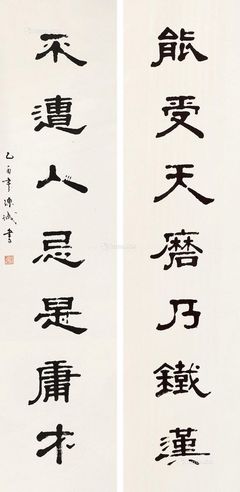 能受天磨乃鐵漢
不遭人忌是庸才
己酉年陳誠書